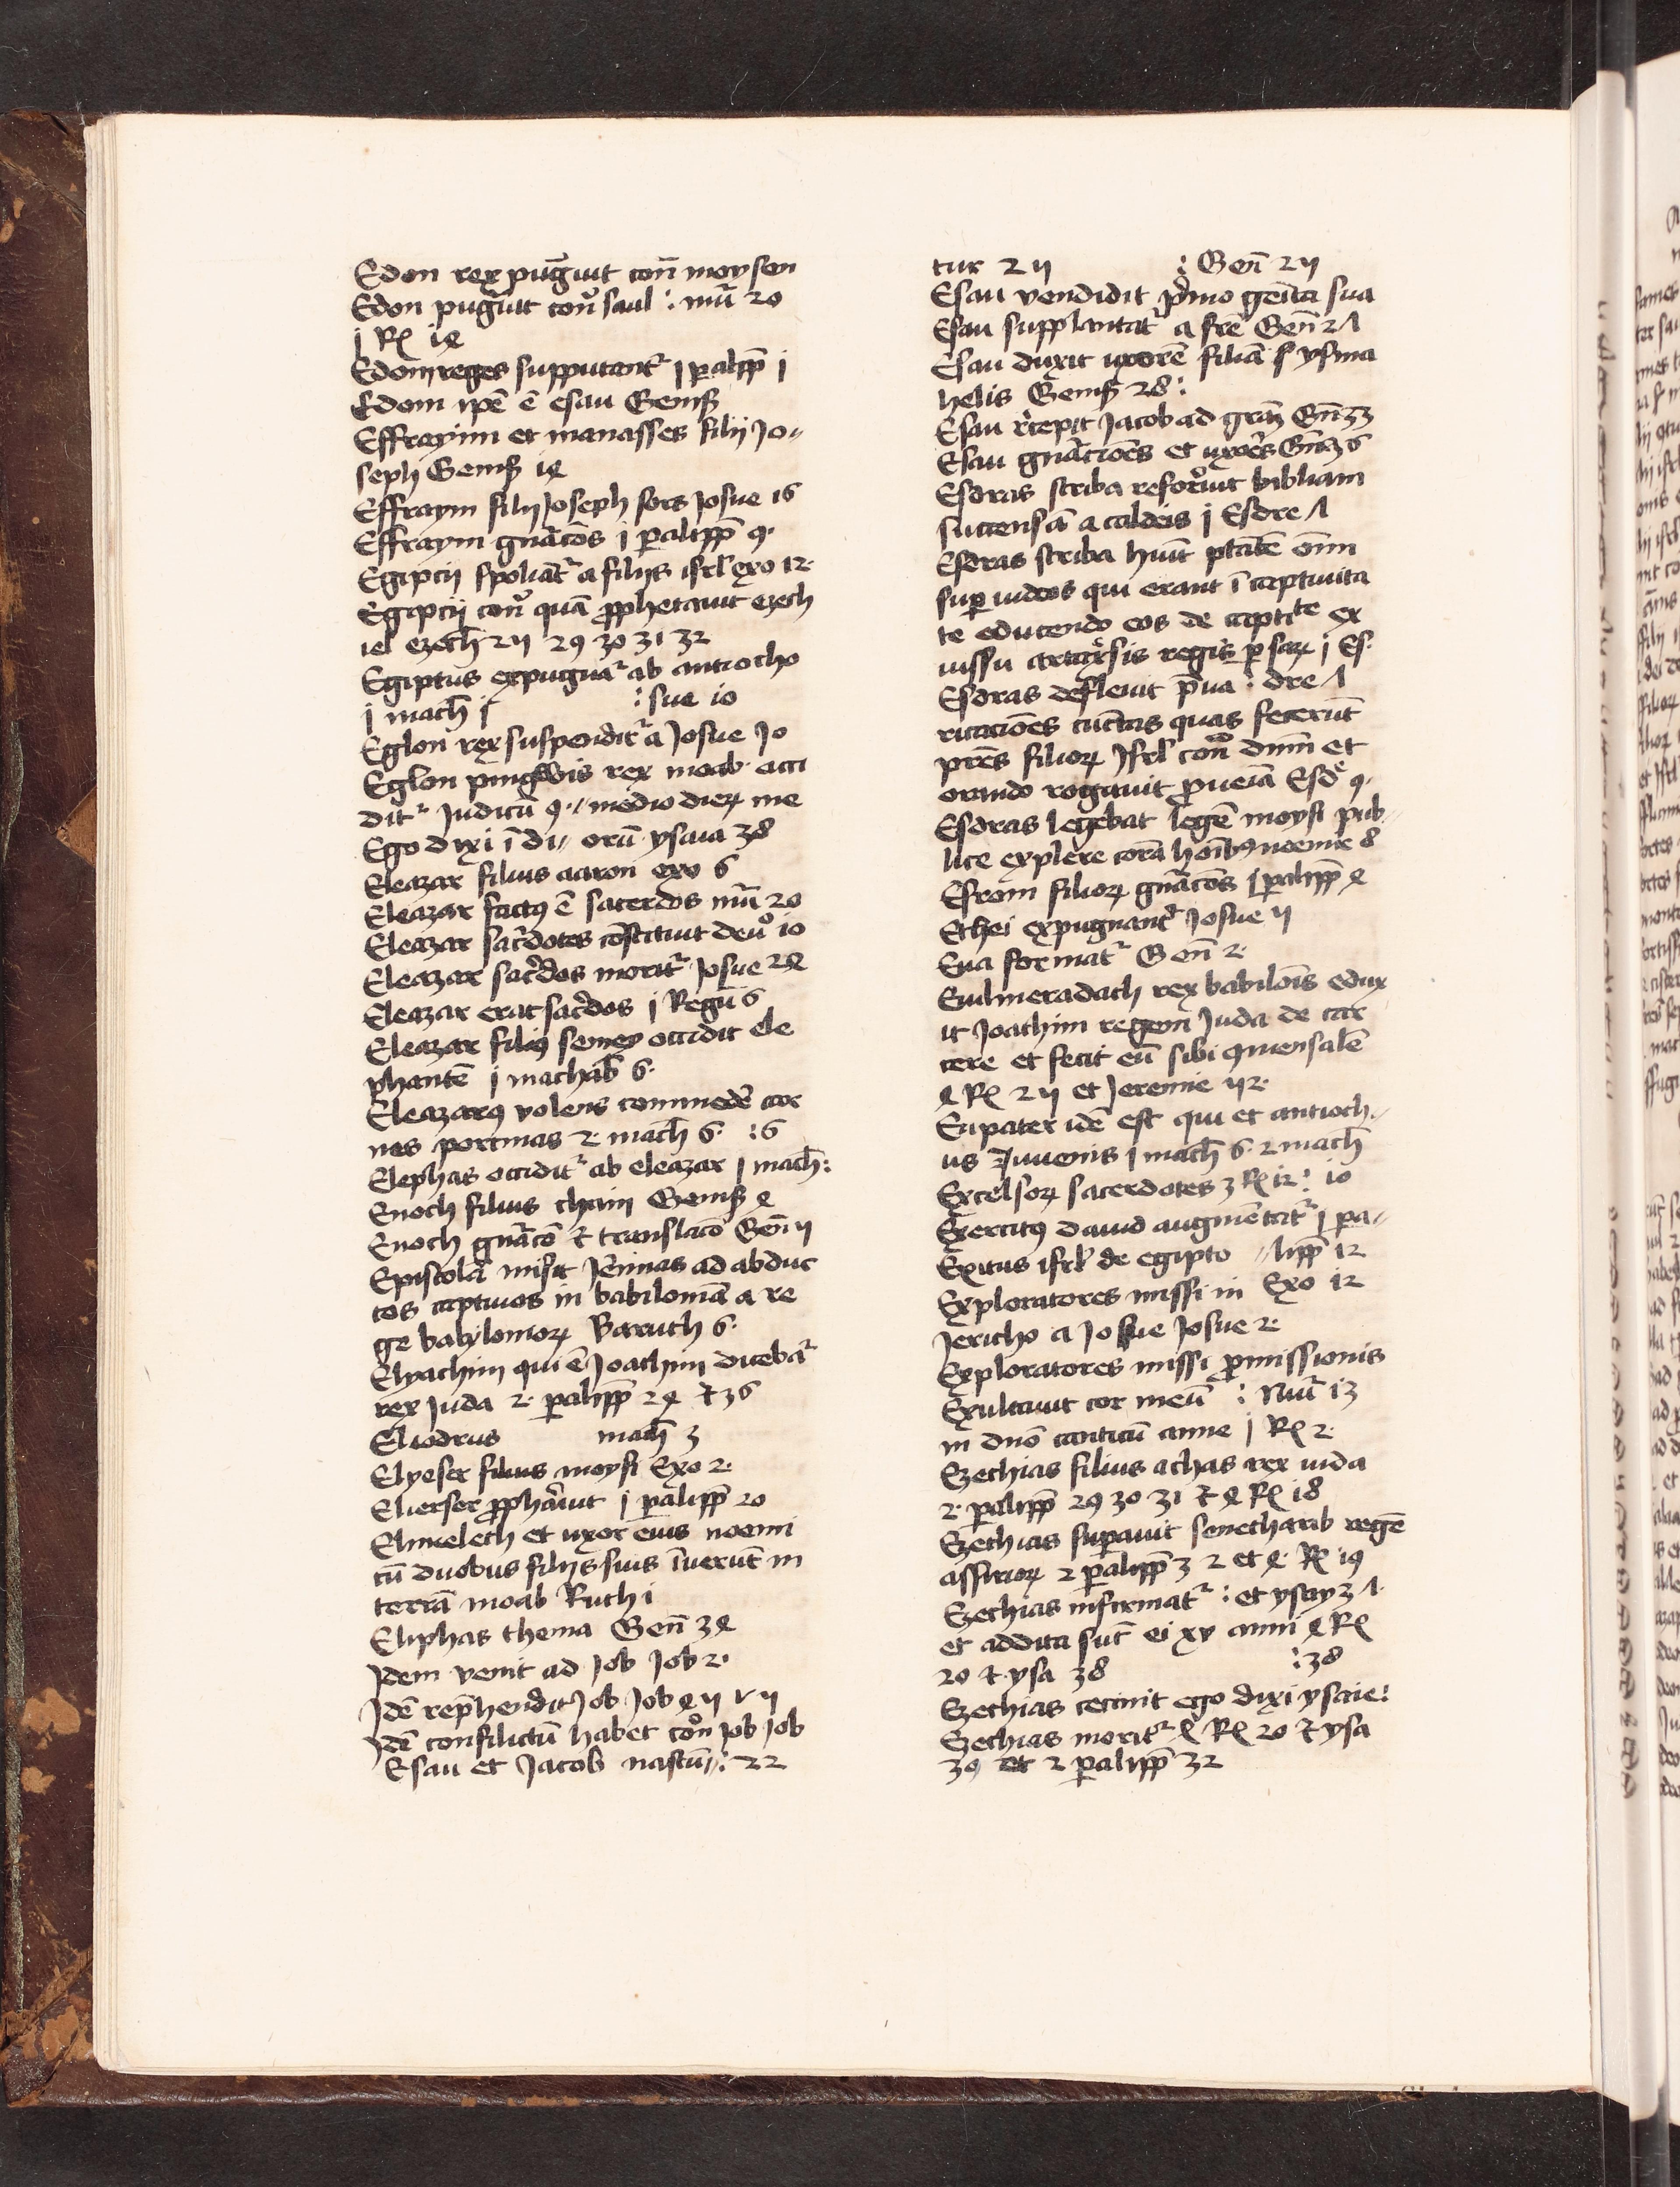 Edon rex pugͣuit coñ moysen
Edon pugͣuit conͦ saul : nūi 20
j Rꝭ i4
Edom reges supputantᷣ j ꝑalipp̄ j
Edom ipē ē esau Geneß
Effrayim et manasses filij Jo⸗
seph Geneß i4
Effraym filij Joseph sors Josue i6
Effraym gnᷓacōs j ꝑalipp̄ 9.
Egipcij spoliātᷣ a filijs isrl̄ exo 12.
Egipcij conͦ quā ꝓphetauit ezech
iel ezech̄ 2ii 29 30 31 32
Egiptus expugnaᷣ ab antiocho
j mach̄ j : sue io
Eglon rex suspenditᷣ a Josue Jo
Eglon pingwis rex moab occi
ditᷣ Judicū 9.⸗ medio dieꝝ me
Ego dixi ī di⸗ orū ysaia 38
Eleazar filius aaron exo 6
Eleazar factꝰ ē sacerdos nūi 20
Eleazar sac̄dotes cōstituit deuͦ io
Eleazar sac̄dos moritᷣ Josue 24
Eleazar erat sac̄dos j Regū 6
Eleazar filiꝰ semey occidit ele
phantē j machab̄ 6.
Eleazarꝰ volens commedē car
nes porcinas 2. mach̄ 6. :6
Elephas occiditᷣ ab eleazar j mach̄:
Enoch filius chain Geneß 4
Enoch gnᷓacō ⁊ translacō Gen̄ ii
Epistolā misit Jēmias ad abduc
tos captiuos in babiloniā a re
ge babylonioꝝ Baruch 6.
Elyachim qui ē Joachim dicebaᷣ
rex Juda 2. ꝑalipp̄ 24 ⁊ 36
Eliodrus mach̄ 3
Elyeser filius moysi Exo 2.
Elieser ꝓphāuit j ꝑalipp̄ 20
Elimelech et uxor eius noemi
cū duobus filijs suis īuerūt in
terrā moab Ruth i
Eliphas thema Gen̄ 34
Jdem venit ad Job Job 2.
Jdē rep̄hendit Job Job 4 ii v ii
Jdē consilictū habet conͦ Job Job
Esau et Jacob nascūᷣ⸗: 22
tur 2ii : Gen̄ 2ii
Esau vendidit pͥmo genīta sua
Esau supplantatᷣ a frē Gen̄ 2ʌ
Esau duxit uxorē filiā ysma
helis Geneß 28:
Esau rͤcepit Jacob ad graꝫ Gn̄ 33
Esau gnᷓacioēs et uxorͤs Gn̄ 36
Esdras scriba reforᷣuit bibliam
succensā a caldeis j Esdre ʌ
Esdras scriba huit ptātē oīm
suꝑ iudeos qui erant ī captiuita
te educendo eos de captite ex
iussu artaxͬsis regis ꝑsaꝝ j Es:
Esdras defleuit p̄ua : dre ʌ
ricacioēs cūctas quas fecerūt
prēs filioꝝ Jsrl̄ conͦ dnīm et
orando rogauit ꝓ ueiā Esdͤ 9.
Esdras legebat legē moysi pub⸗
lice explere corā hoībꝰ neemie 8
Esrom filioꝝ gnᷓacōs j ꝑalipp̄ 4
Ethei expugnantᷣ Josue ii
Eua formatᷣ Gen̄ 2.
Euilmeradach rex babilōis edux
it Joachim regem Juda de car
cere et fecit eū sibi ꝯuiensalē
4 Rꝭ 2ii et Jeremie ii2.
Eupater idē est qui et antioch⸗
us Juuenis j mach̄ 6. 2 mach̄
Excelsoꝝ sacerdotes 3 Rꝭ i2: io
Exercitꝰ dauid augmētatᷣ j pa⸗
Exitus isrl̄ de egipto ⸗lipp̄ 12
Exploratores missi in Exo i2
Jericho a Josue Josue 2.
Exploratores missi ꝓmissionis
Exultauit cor meū : Nūi i3
in dnō canticū anne j Rꝭ 2.
Ezechias filius achas rex iuda
2. ꝑalipp̄ 29 30 31 ⁊ 4 Rꝭ i8
Ezechias suꝑauit senecharib regē
assirioꝝ 2 ꝑalipp̄ 3 2 et 4. Rꝭ i9
Ezechias infirmatᷣ : et ysay 3 ʌ.
et addita sūt ei xv anni 4 Rꝭ
20 ⁊ ysa 38 :38
Ezechias cecinit ego dixi ysaie:
Ezechias moritᷣ 4 Rꝭ 20 ⁊ ysa
39 et 2 ꝑalipp̄ 32